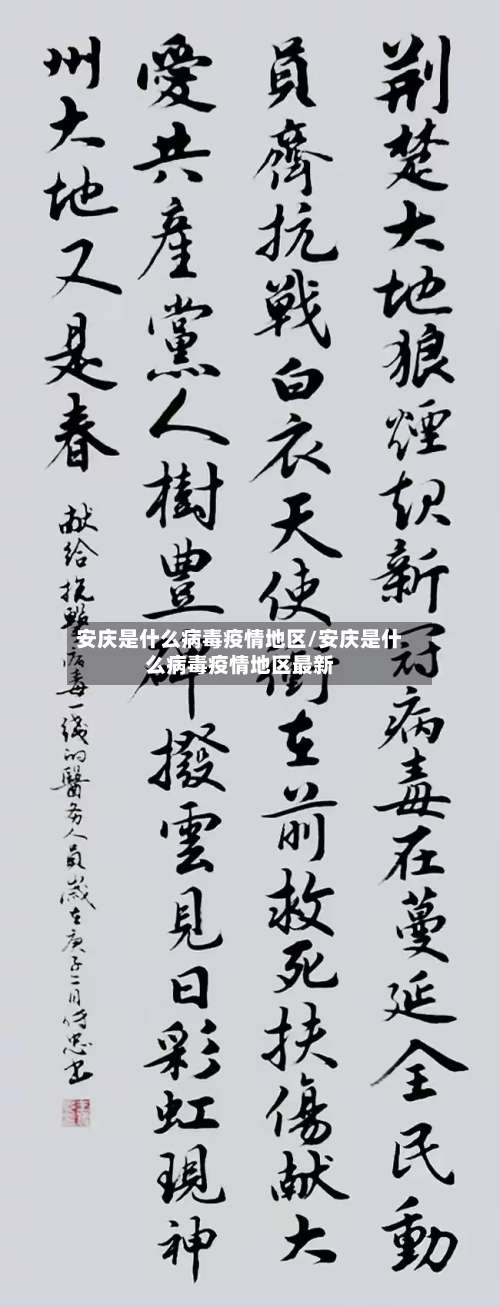 荆楚大地狼煙起新冠病毒在蔓延全民動
員齊抗戰白衣天使衝在前救死扶傷献大
愛共產黨人樹豊碑撥雲見日彩虹現神
州大地又是春
献给抗擊病毒一线的醫务人員歲在庚子二月侍忠书
安庆是什么病毒疫情地区/安庆是什
么病毒疫情地区最新